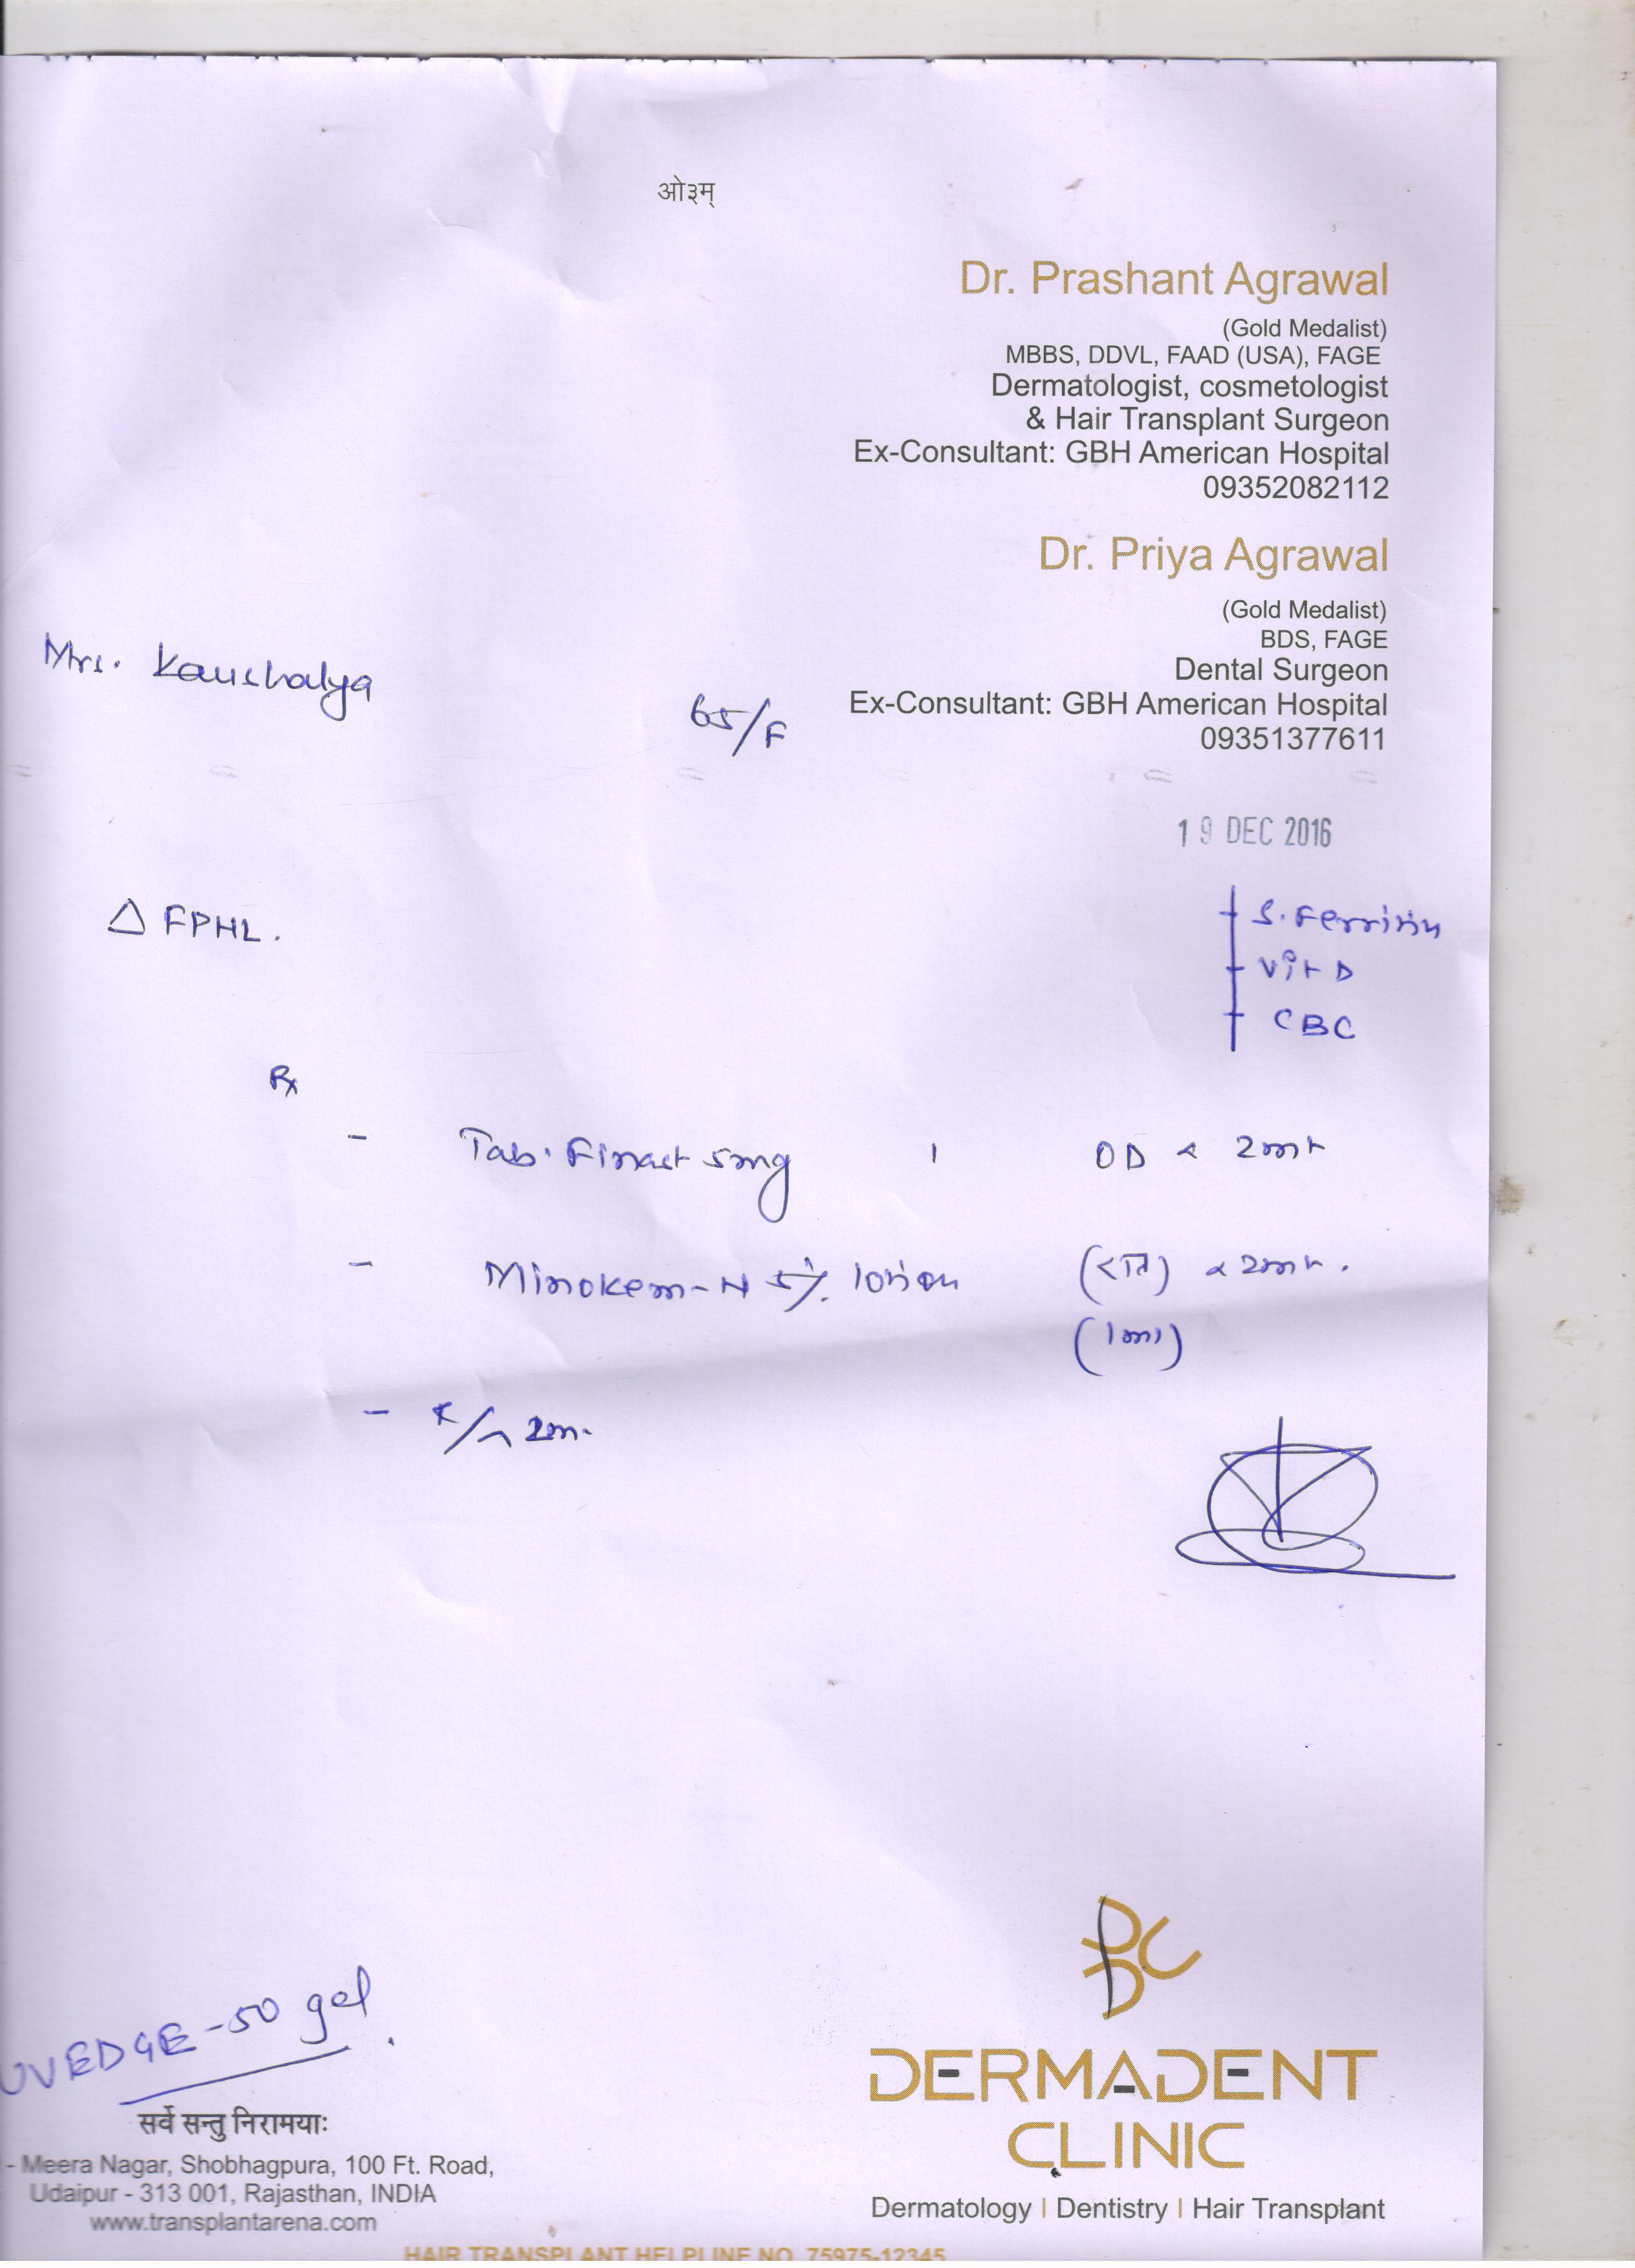 ओ३म्
Dr. Prashant Agrawal
(Gold Medalist)
MBBS, DDVL, FAAD (USA), FAGE
Dermatologist, cosmetologist
& Hair Transplant Surgeon
Ex-Consultant: GBH American Hospital
09352082112
Dr. Priya Agrawal
(Gold Medalist)
BDS, FAGE
Dental Surgeon
Ex-Consultant: GBH American Hospital
09351377611
Mrs. Kaushalya 65/F
19 DEC 2016
Δ FPHL.
S. Ferritin
Vit D
CBC
Rx
- Tab. Finast 5mg 1 OD x 2mt
- Minokem-N 5% lotion (रात) x 2mt.
(1ml)
- 2m.
UVEDGE-50 gel
सर्वे सन्तु निरामयाः
- Meera Nagar, Shobhagpura, 100 Ft. Road,
Udaipur - 313 001, Rajasthan, INDIA
www.transplantarena.com
DERMADENT
CLINIC
Dermatology | Dentistry | Hair Transplant
HAIR TRANSPLANT HELPLINE NO. 75975-12345